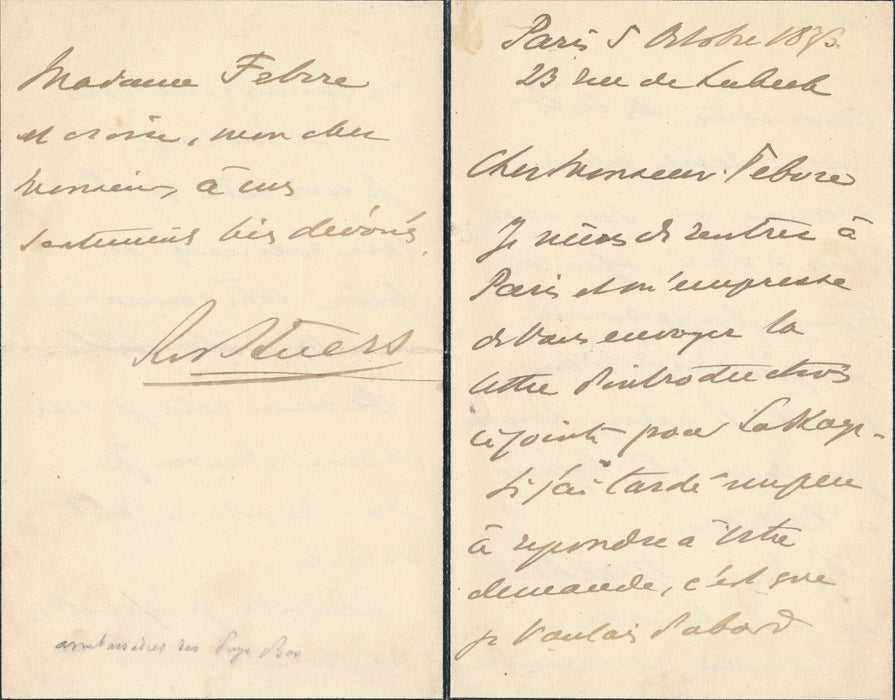 Paris 5 Octobre
23 rue de Lubeck
Cher Monsieur Febvre
Je viens de rentrer à
Paris et m'empresse
de vous envoyer la
lettre d'introduction
ci jointe pour La Haye -
Si j'ai tardé un peu
à repondre à votre
demande, c'est que
je voulais d'abord
Madame Febvre
et croire, mon cher
Monsieur, à mes
sentiments très dévoués
Stuers
ambassadeur des Pays Bas